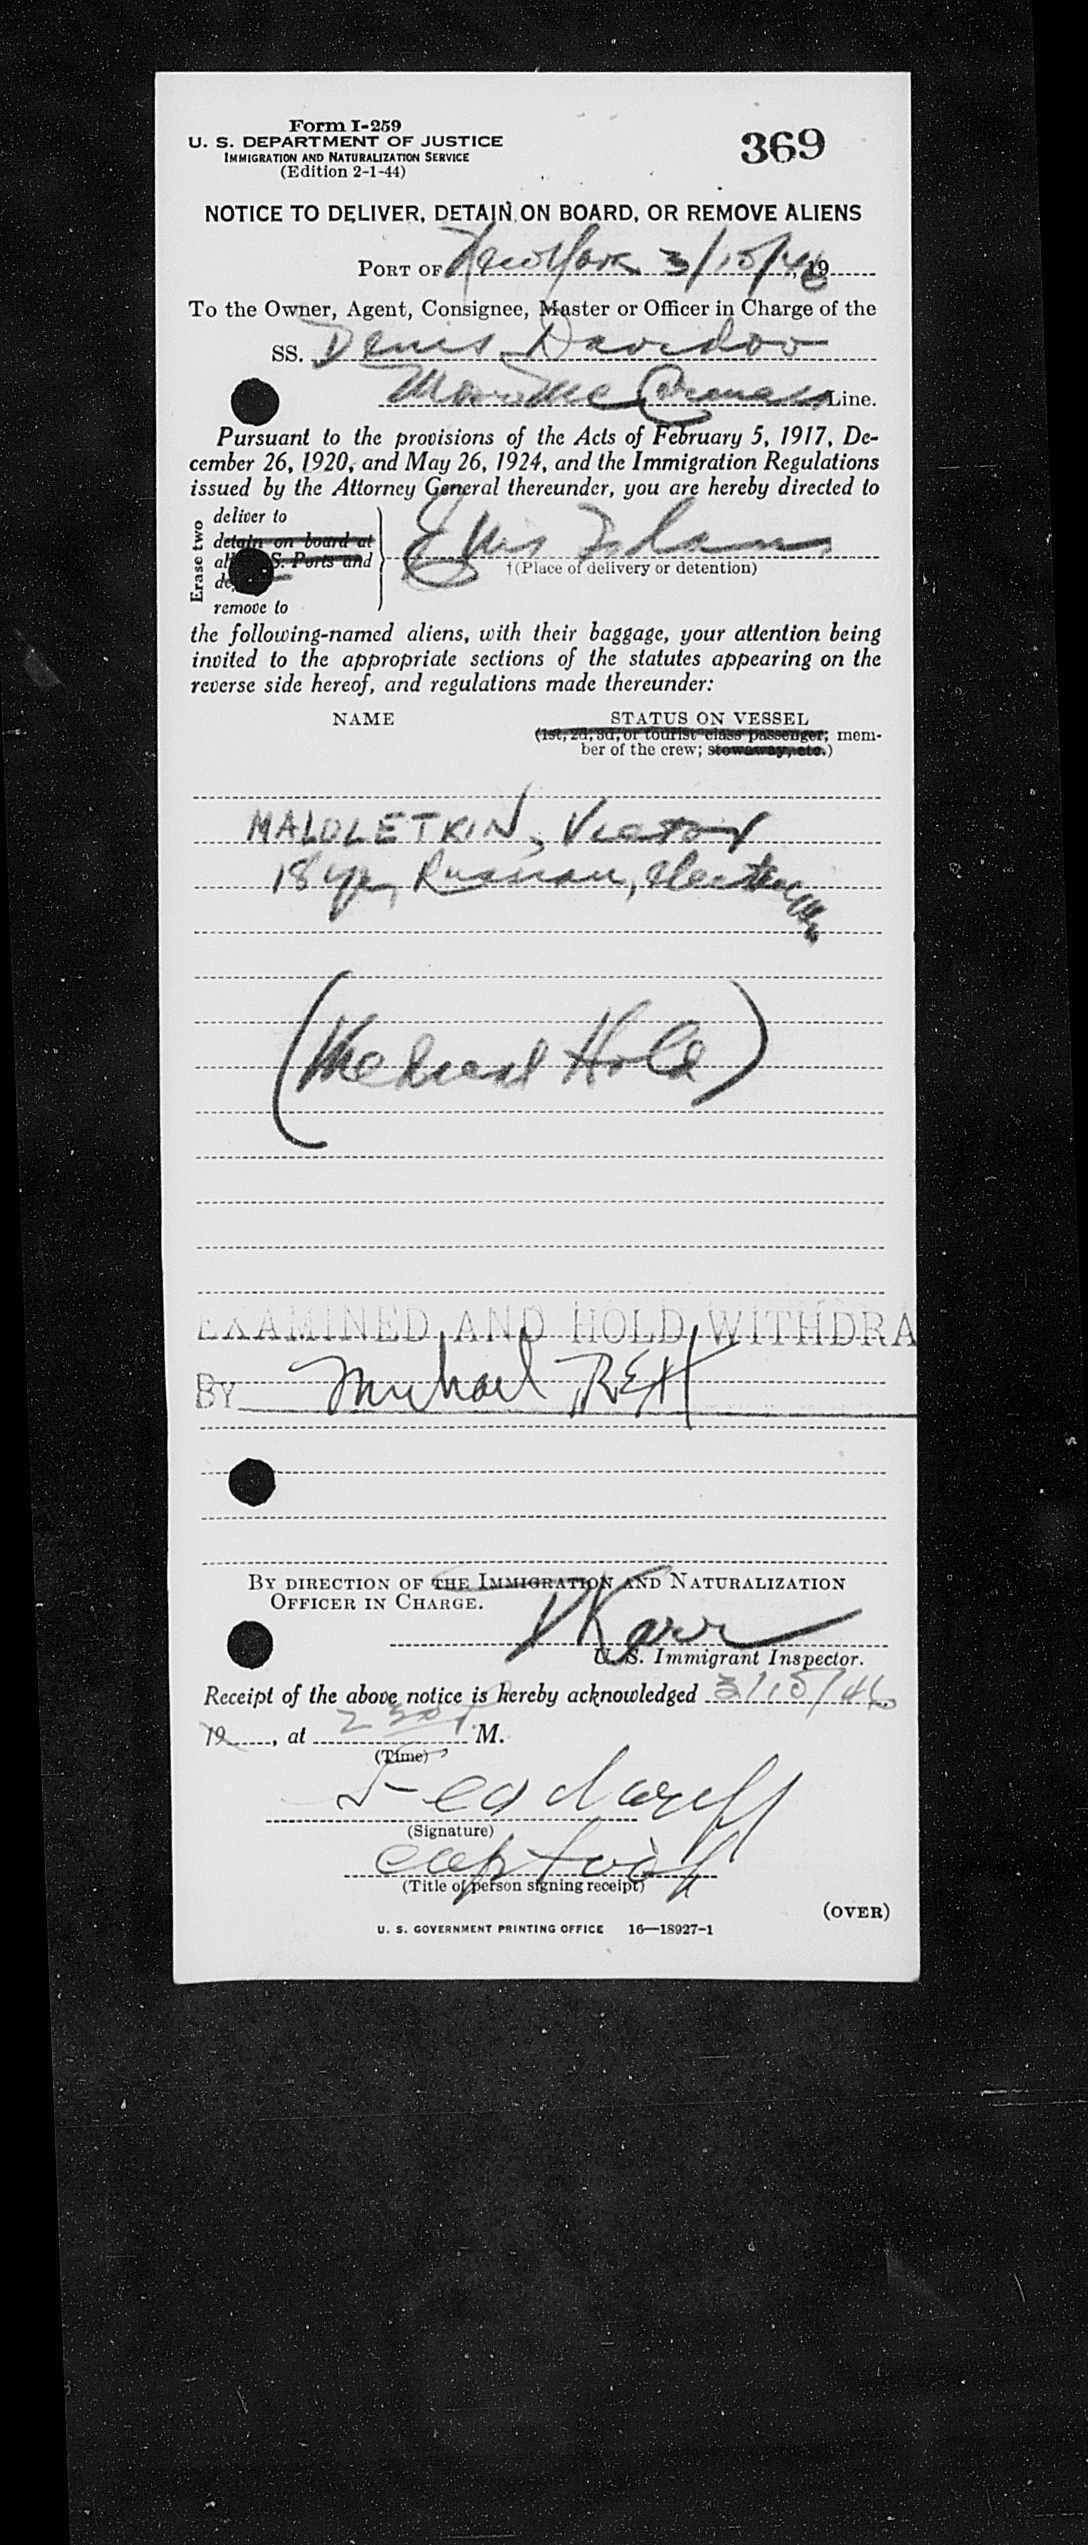 Form I-259
U. S. DEPARTMENT OF JUSTICE
IMMIGRATION AND NATURALIZATION SERVICE
(Edition 2-1-44)
369
NOTICE TO DELIVER, DETAIN ON BOARD, OR REMOVE ALIENS
PORT OF New York 3/15/46, 19
To the Owner, Agent, Consignee, Master or Officer in Charge of the
SS. Denis Davidov
Moor McCormack Line.
Pursuant to the provisions of the Acts of February 5, 1917, De-
cember 26, 1920, and May 26, 1924, and the Immigration Regulations
issued by the Attorney General thereunder, you are hereby directed to
Erase two
deliver to
detain on board at
al S. Ports and
de
remove to
Ellis Island
†(Place of delivery or detention)
the following-named aliens, with their baggage, your attention being
invited to the appropriate sections of the statutes appearing on the
reverse side hereof, and regulations made thereunder:
NAME
STATUS ON VESSEL
(1st, 2d, 3d, or tourist class passenger; mem-
ber of the crew; stowaway, etc.)
MALOLETKIN, Victor
18 yr, Russian,
(Medical Hold)
EXAMINED AND HOLD WITHDRA
BY Michael
BY DIRECTION OF THE IMMIGRATION AND NATURALIZATION
OFFICER IN CHARGE.
Karr
U. S. Immigrant Inspector.
Receipt of the above notice is hereby acknowledged 3/15/46
19, at 230 P M.
(Time)
(Signature)
(Title of person signing receipt)
(OVER)
U. S. GOVERNMENT PRINTING OFFICE 16—18927-1